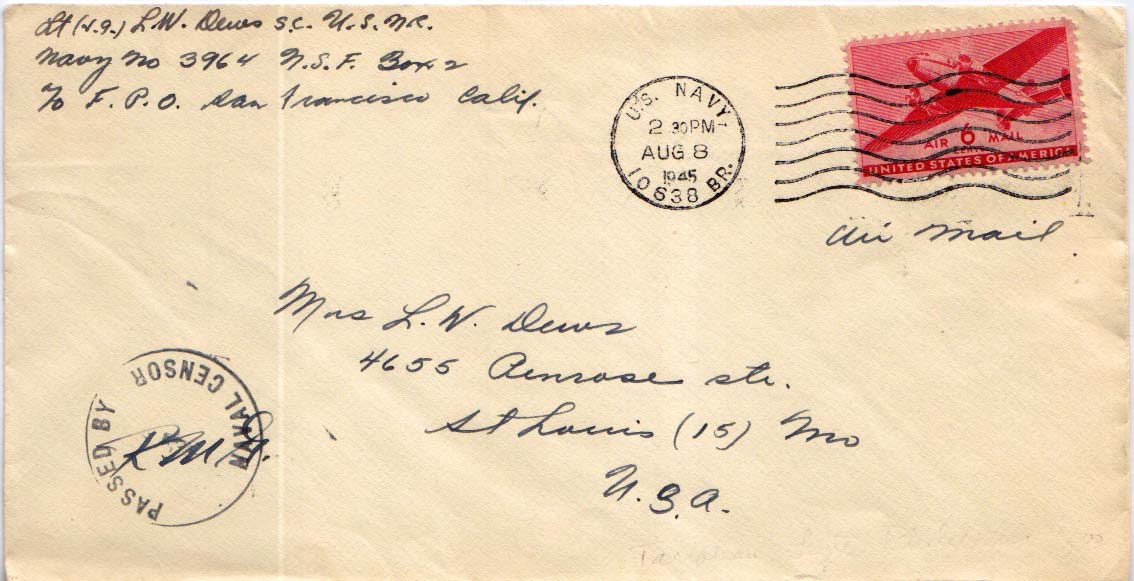 Lt (J.g.) L.W. Dews S.C. U.S.N.R.
Navy No 3964 N.S.F. Box 2
℅ F.P.O. San Francisco Calif.
U.S. NAVY
2 30 PM
AUG 8
1945
10638 BR.
AIR 6 MAIL
CENTS
UNITED STATES OF AMERICA
Air Mail
Mrs L.W. Dews
4655 Penrose str.
St Louis (15) Mo
U.S.A.
PASSED BY
NAVAL CENSOR